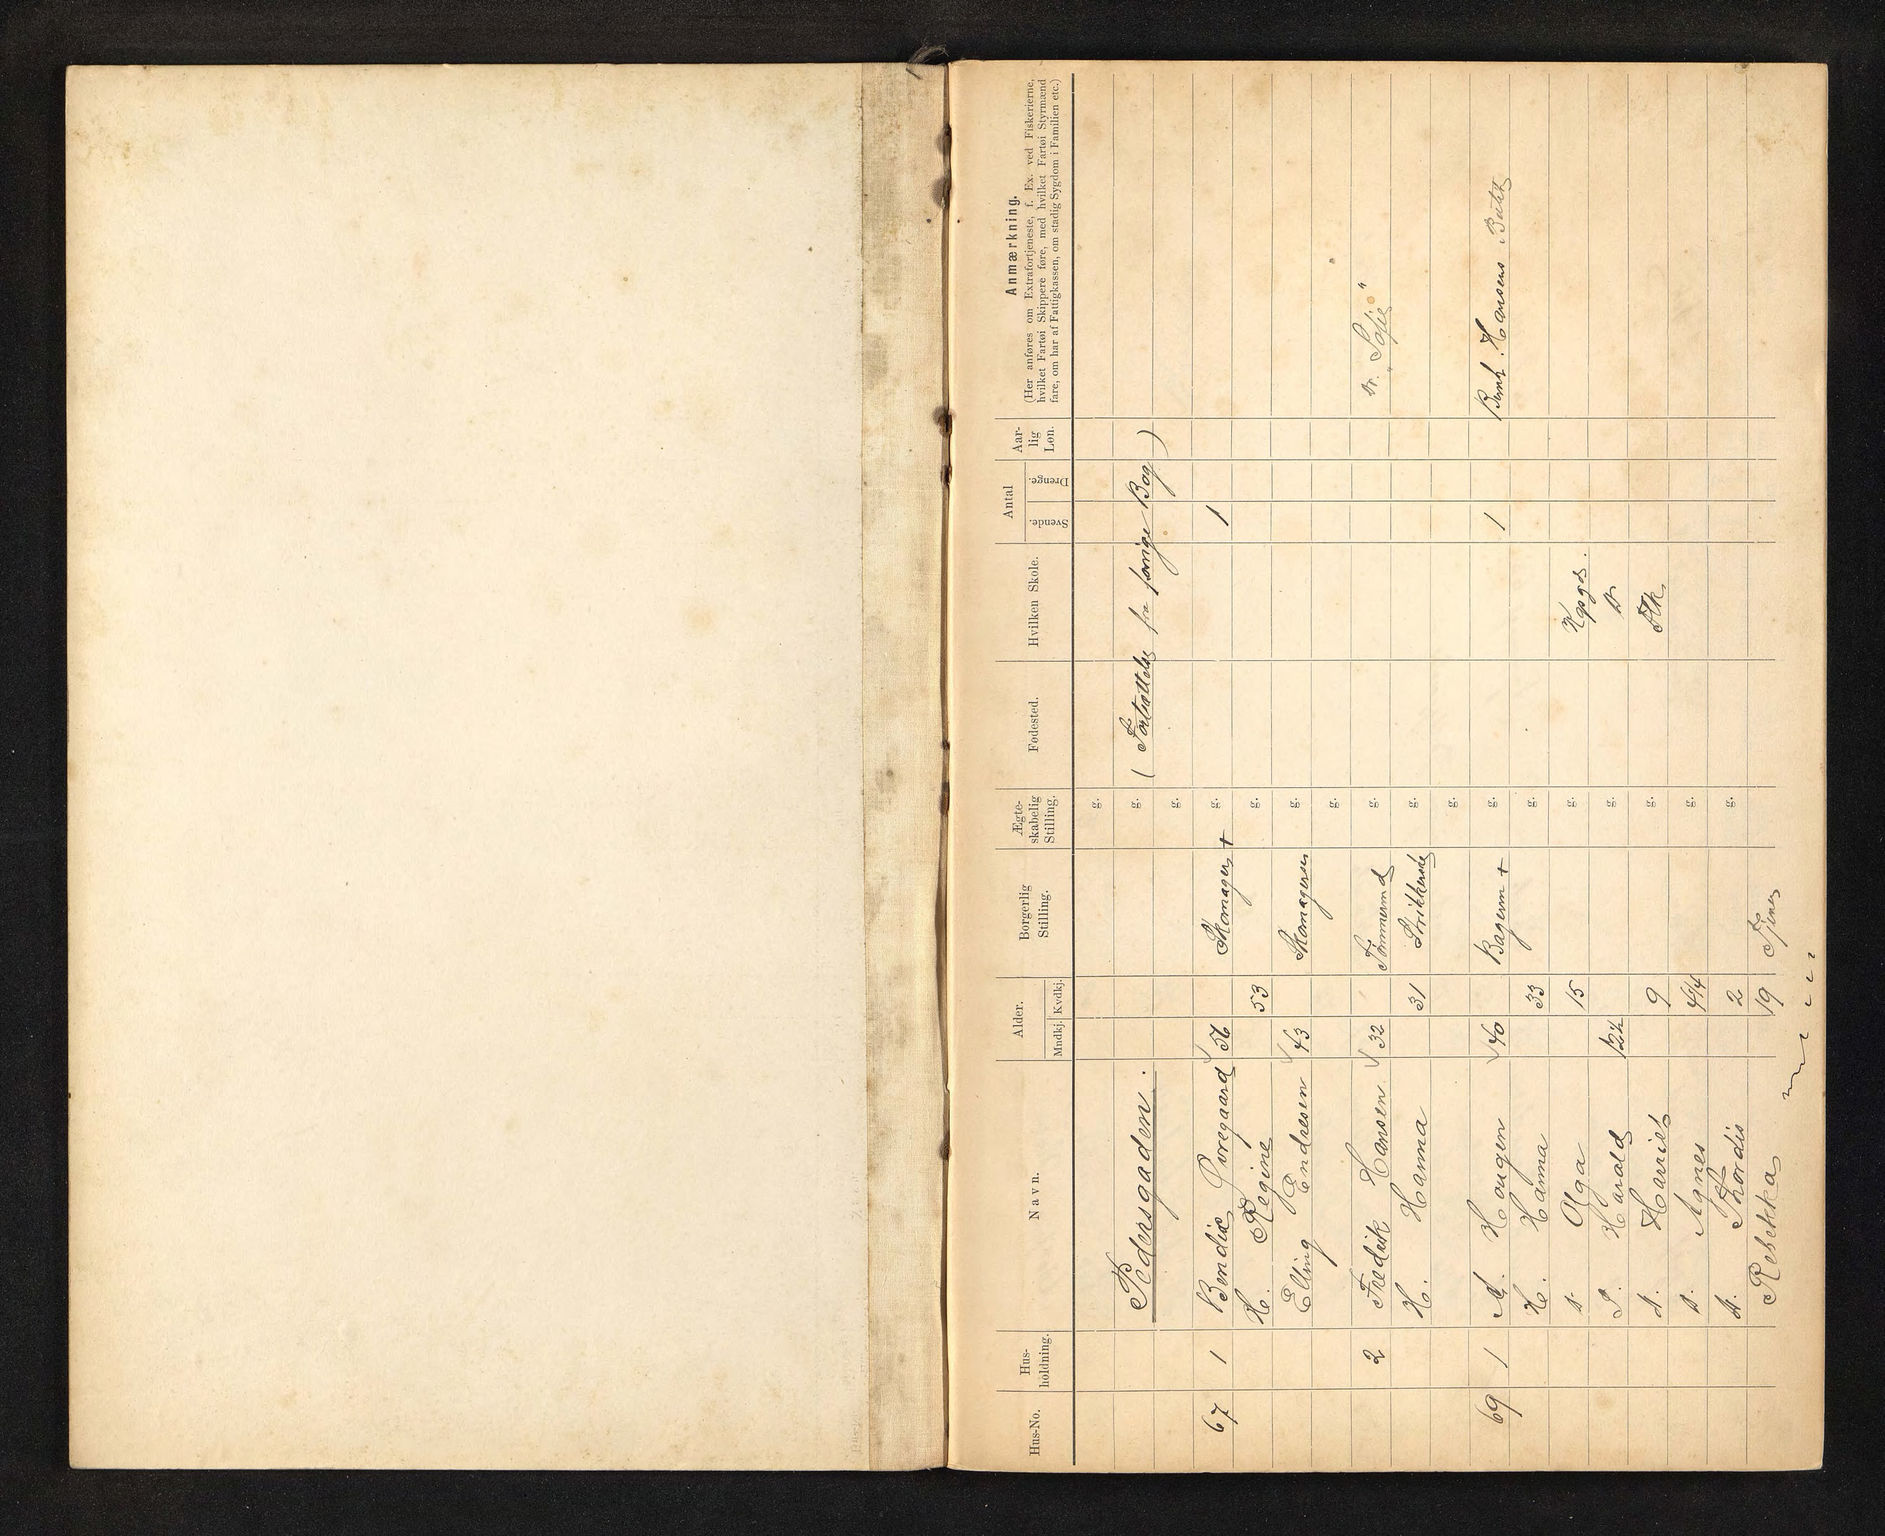 Hus-No. Hus-holdning. Navn. Alder. Mndkj. Kvdkj. Borgerlig Stilling. Ægte-skabelig Stilling. Fødested. Hvilken Skole. Antal Svende. Drenge. Aar-lig Løn. Anmærkning.
(Her anføres om Extrafortjeneste, f. Ex. ved Fiskerierne,
hvilket Fartøi Skippere føre, med hvilket Fartøi Styrmænd
fare, om har af Fattigkassen, om stadig Sygdom i Familien etc.)
g.
Pedersgaden. g. (Fortsættelse fra forrige Bog)
g.
67 1 Bendix Goregaard 56 Skomager + g. 1
H. Regine 53 g.
Elling Endresen 43 Skomagersv g.
g.
2 Fredrik Hansen 32 Tømmermd g. "Sofie"
H. Hanna 31 Strikkerske g.
g.
69 1 A. Hougen 40 Bagerm + g. 1 Bernh. Hansens Bakk
H. Hanna 33 g.
D. Olga 15 g. Kgsgd.
S. Harald 12½ g. D
D. Harriet 9 g. Flk
D. Agnes 4¼ g.
D. Thordis 2 g.
Rebekka 19 Tjener